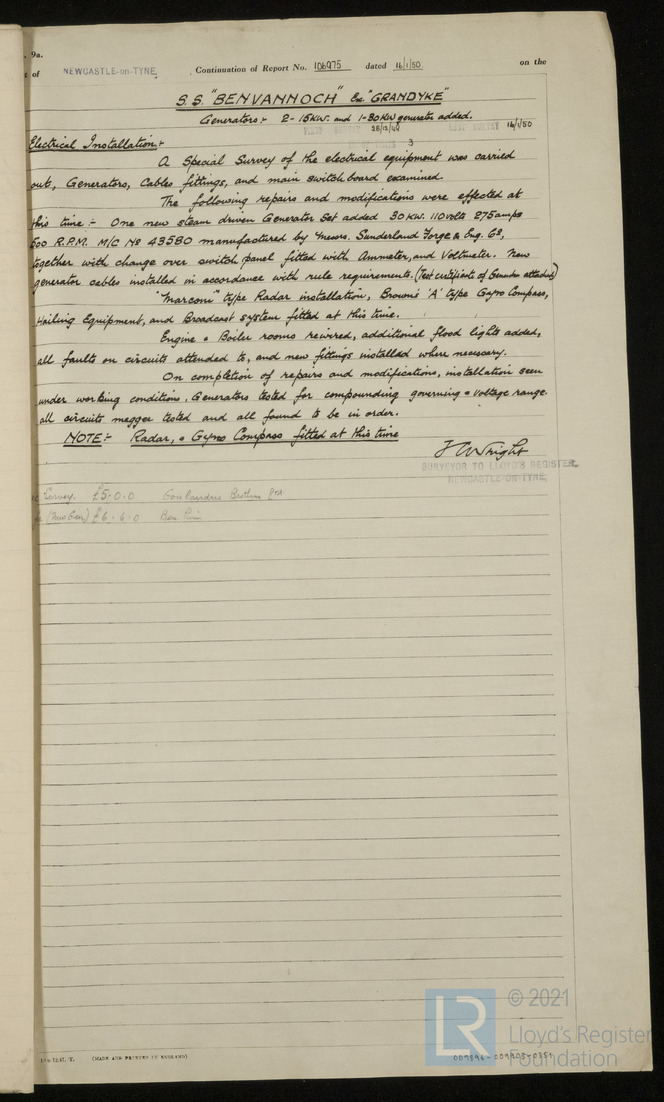 9a.
of NEWCASTLE-on-TYNE. Continuation of Report No. 106975 dated 16/1/50 on the
S.S. "BENVANNOCH" Ex "GRANDYKE"
Generators:- 2-15KW. and 1-30KW generator added.
FIRST SURVEY 28/12/49 LAST SURVEY 16/1/50
3
Electrical Installation:-
A Special Survey of the electrical equipment was carried
out, Generators, Cables fittings, and main switchboard examined.
The following repairs and modifications were effected at
this time:- One new steam driven Generator Set added 30KW. 110volts 275amps
500 R.P.M. M/C No 43580 manufactured by Messrs. Sunderland Forge & Eng. Co,
together with change over switch panel fitted with Ammeter, and Voltmeter. New
generator cables installed in accordance with rule requirements. (Test certificate of Generator attached)
"Marconi" type Radar installation, Browns 'A' type Gyro Compass,
Hailing Equipment, and Broadcast system fitted at this time.
Engine & Boiler rooms rewired, additional flood lights added,
all faults on circuits attended to, and new fittings installed where necessary.
On completion of repairs and modifications, installation seen
under working conditions, Generators tested for compounding governing & voltage range.
all circuits megger tested and all found to be in order.
NOTE:- Radar, & Gyro Compass fitted at this time
J Wright
SURVEYOR TO LLOYD'S REGISTER,
NEWCASTLE-ON-TYNE.
Survey. £5.0.0 Brothers Ltd
(New Gen) £6.6.0 Ben
(MADE AND PRINTED IN ENGLAND)
LR © 2021
Lloyd's Register
Foundation
009896-009903-0351